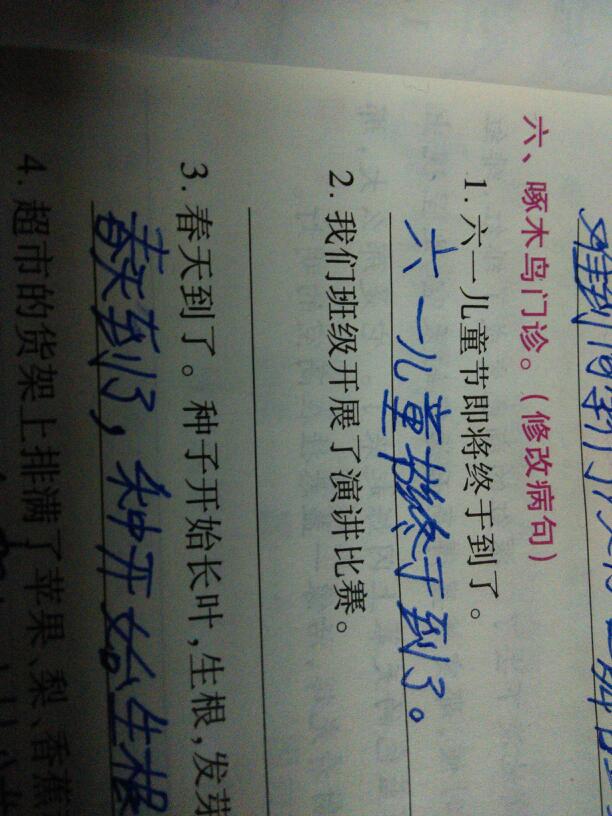 六、啄木鸟门诊。（修改病句）
1. 六一儿童节即将终于到了。
六一儿童节终于到了。
2. 我们班级开展了演讲比赛。
3. 春天到了。种子开始长叶，生根，发芽
春天到了，种开始生根
4. 超市的货架上排满了苹果、梨、香蕉